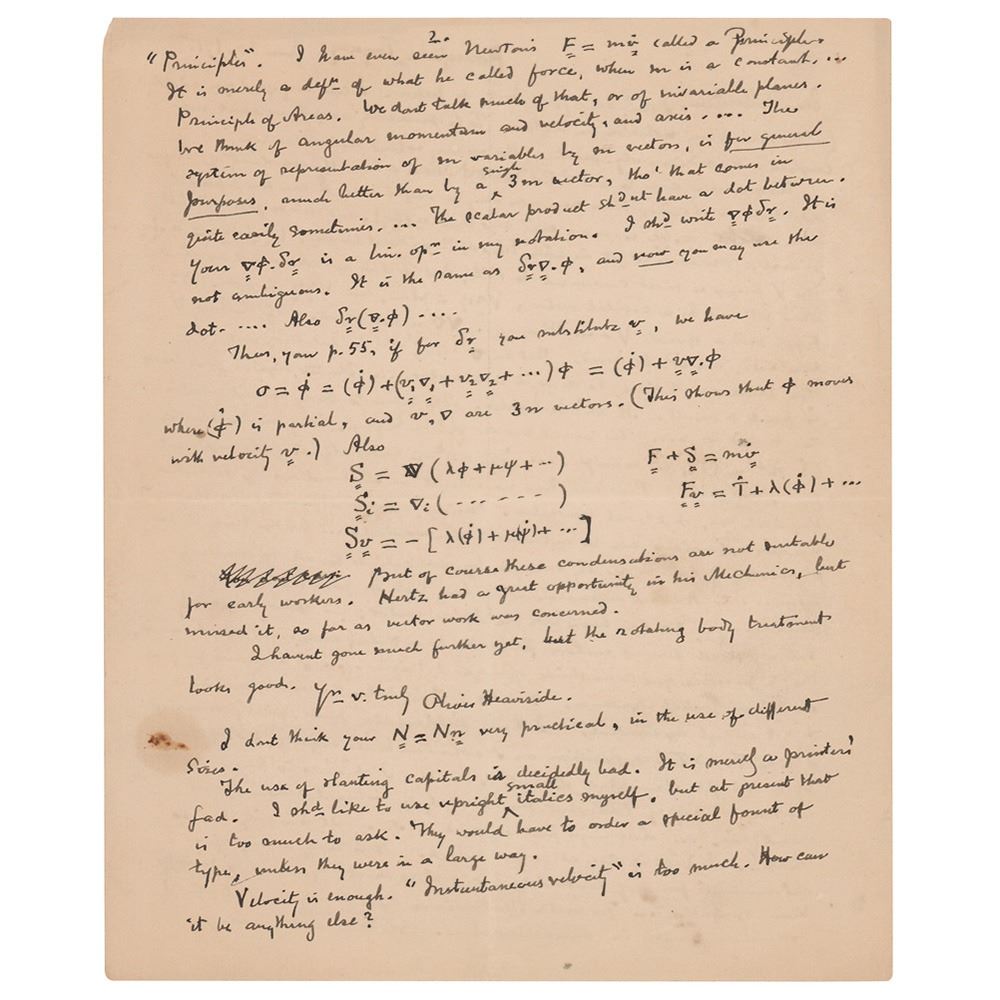 2.
"Principles". I have even seen Newton's F = mv̇ called a Principle.
It is merely a defn of what he called force, when m is a constant. ...
Principle of Areas. We dont talk much of that, or of invariable planes.
We think of angular momentum and velocity, and axis. ... The
system of representation of m variables by m vectors, is for general
purposes, much better than by a single 3m vector, tho' that comes in
quite easily sometimes. ... The scalar product shdnt have a dot between.
Your ∇φ.δr is a lin. opr in my notation. I shd write ∇φδr. It is
not ambiguous. It is the same as δr∇.φ, and now you may use the
dot. .... Also δr(∇.φ) ....
Thus, your p.55, if for δr you substitute v, we have
σ = φ̇ = (φ̇) + (v₁∇₁ + v₂∇₂ + ...) φ = (φ̇) + v∇.φ
where (φ̇) is partial, and v, ∇ are 3n vectors. (This shows that φ moves
with velocity v.) Also
S = ∇ (λφ + μψ + ...) F + S = mv̇
Sᵢ = ∇ᵢ ( ... - - - ) Fv = Ṫ + λ(φ̇) + ...
Sv = - [ λ(φ̇) + μ(ψ̇) + ... ]
But of course these condensations are not suitable
for early workers. Hertz had a great opportunity in his Mechanics, but
missed it, so far as vector work was concerned.
I havent gone much further yet, but the rotating body treatment
looks good. Yrs v. truly Oliver Heaviside.
I dont think your N = Nn very practical, in the use of different
sizes.
The use of slanting capitals is decidedly bad. It is merely a printers'
fad. I shd like to use upright small italics myself, but at present that
is too much to ask. They would have to order a special fount of
type, unless they were in a large way.
Velocity is enough. "Instantaneous velocity" is too much. How can
it be anything else?